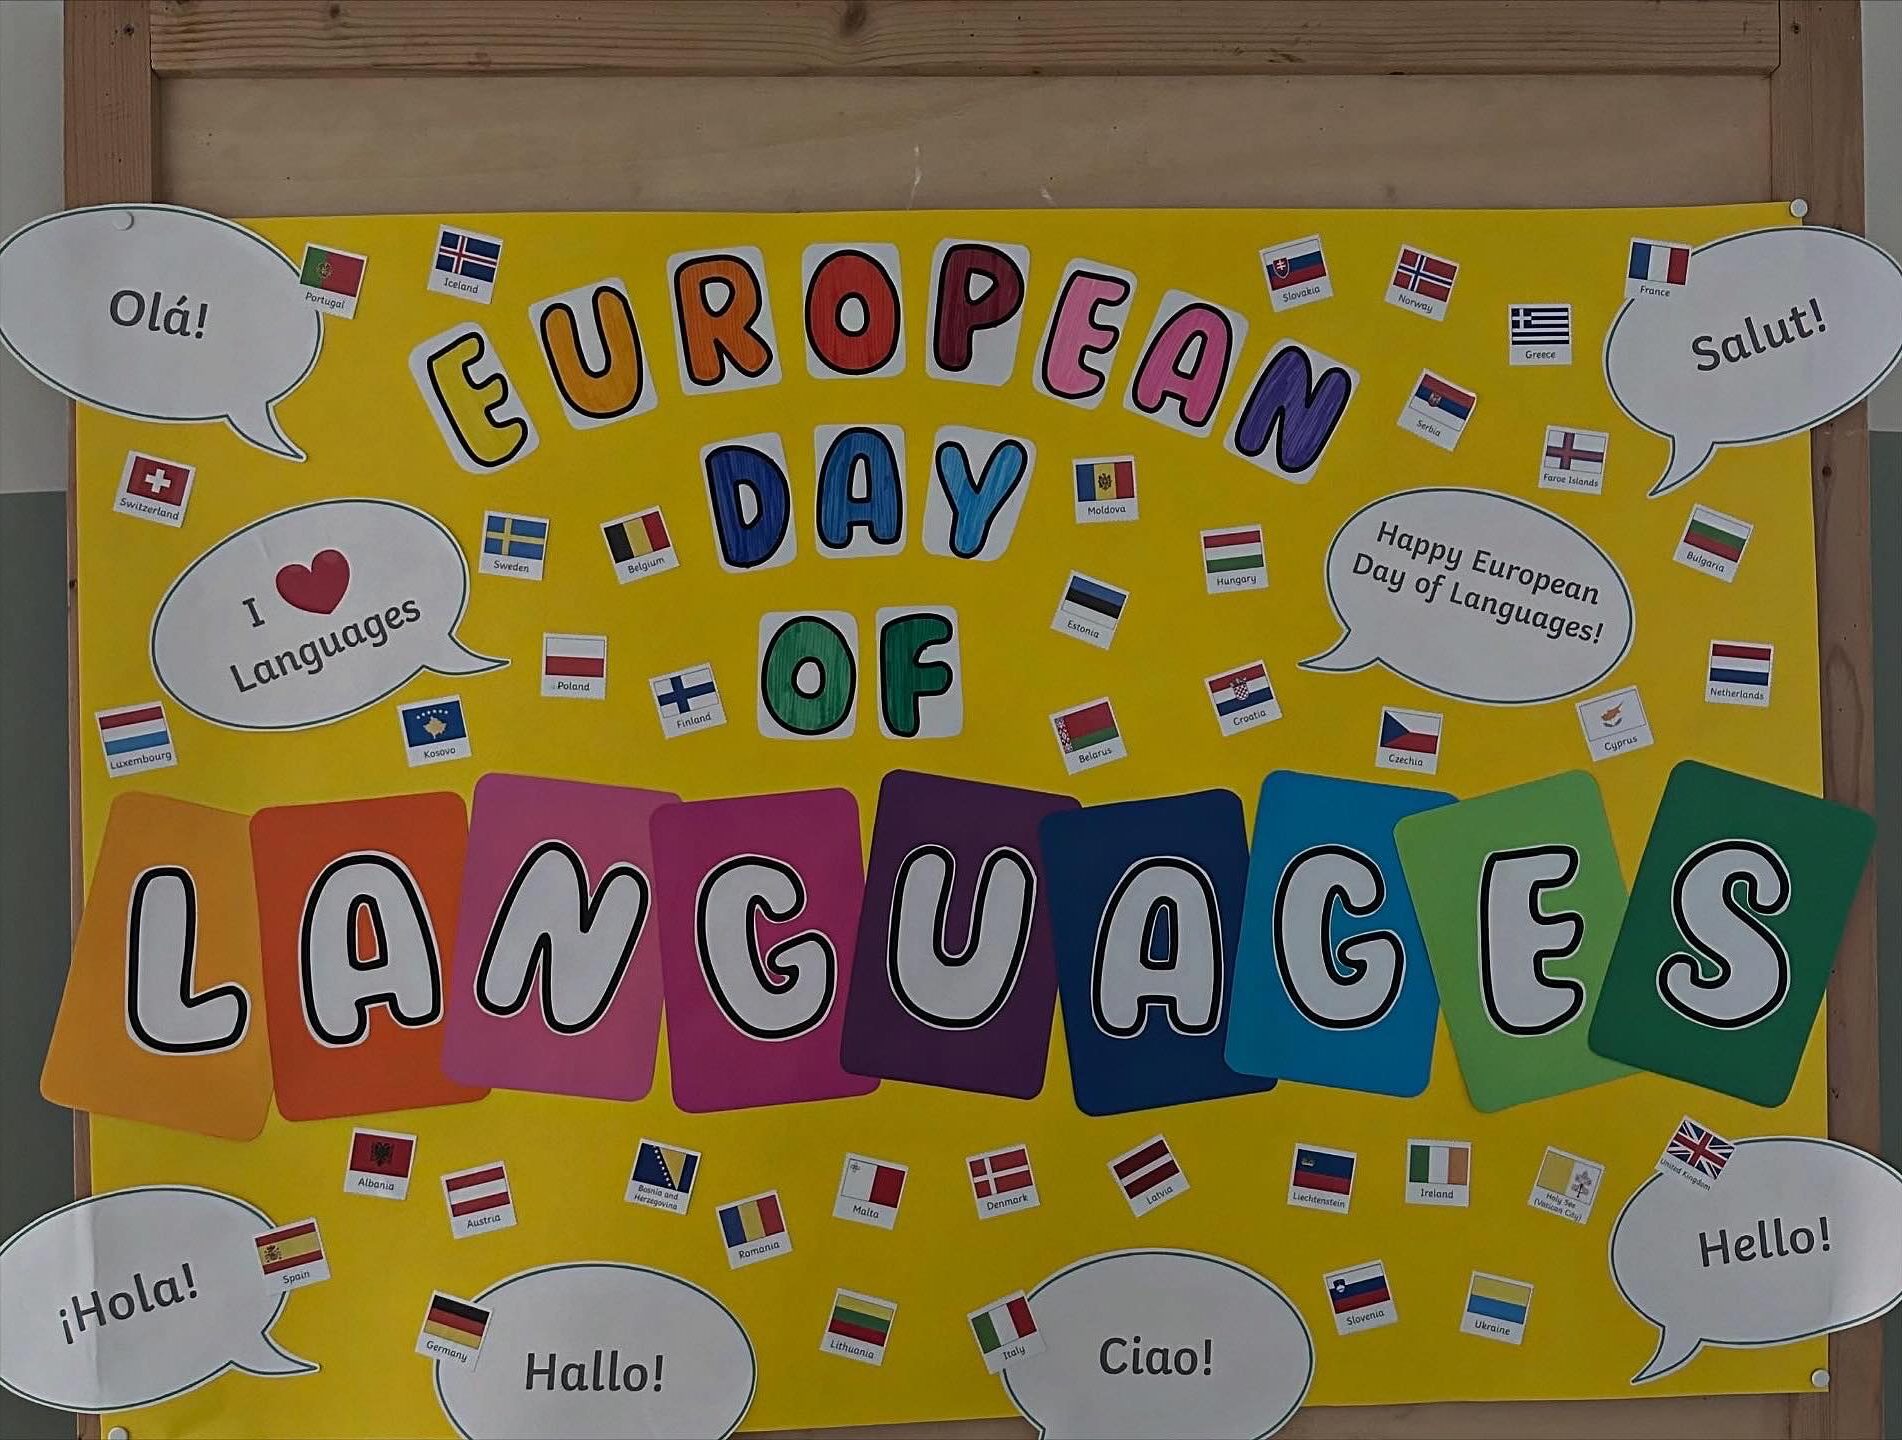 Olá!
Portugal
Iceland
EUROPEAN
Slovakia
Norway
Greece
France
Salut!
Serbia
Faroe Islands
Switzerland
DAY
Moldova
I ❤
Languages
Sweden
Belgium
Hungary
Estonia
Happy European
Day of Languages!
Bulgaria
OF
Poland
Finland
Croatia
Netherlands
Luxembourg
Kosovo
Belarus
Czechia
Cyprus
LANGUAGES
Albania
Austria
Bosnia and
Herzegovina
Romania
Malta
Denmark
Latvia
Liechtenstein
Ireland
Holy See
(Vatican City)
United Kingdom
Hello!
¡Hola!
Spain
Germany
Hallo!
Lithuania
Italy
Ciao!
Slovenia
Ukraine